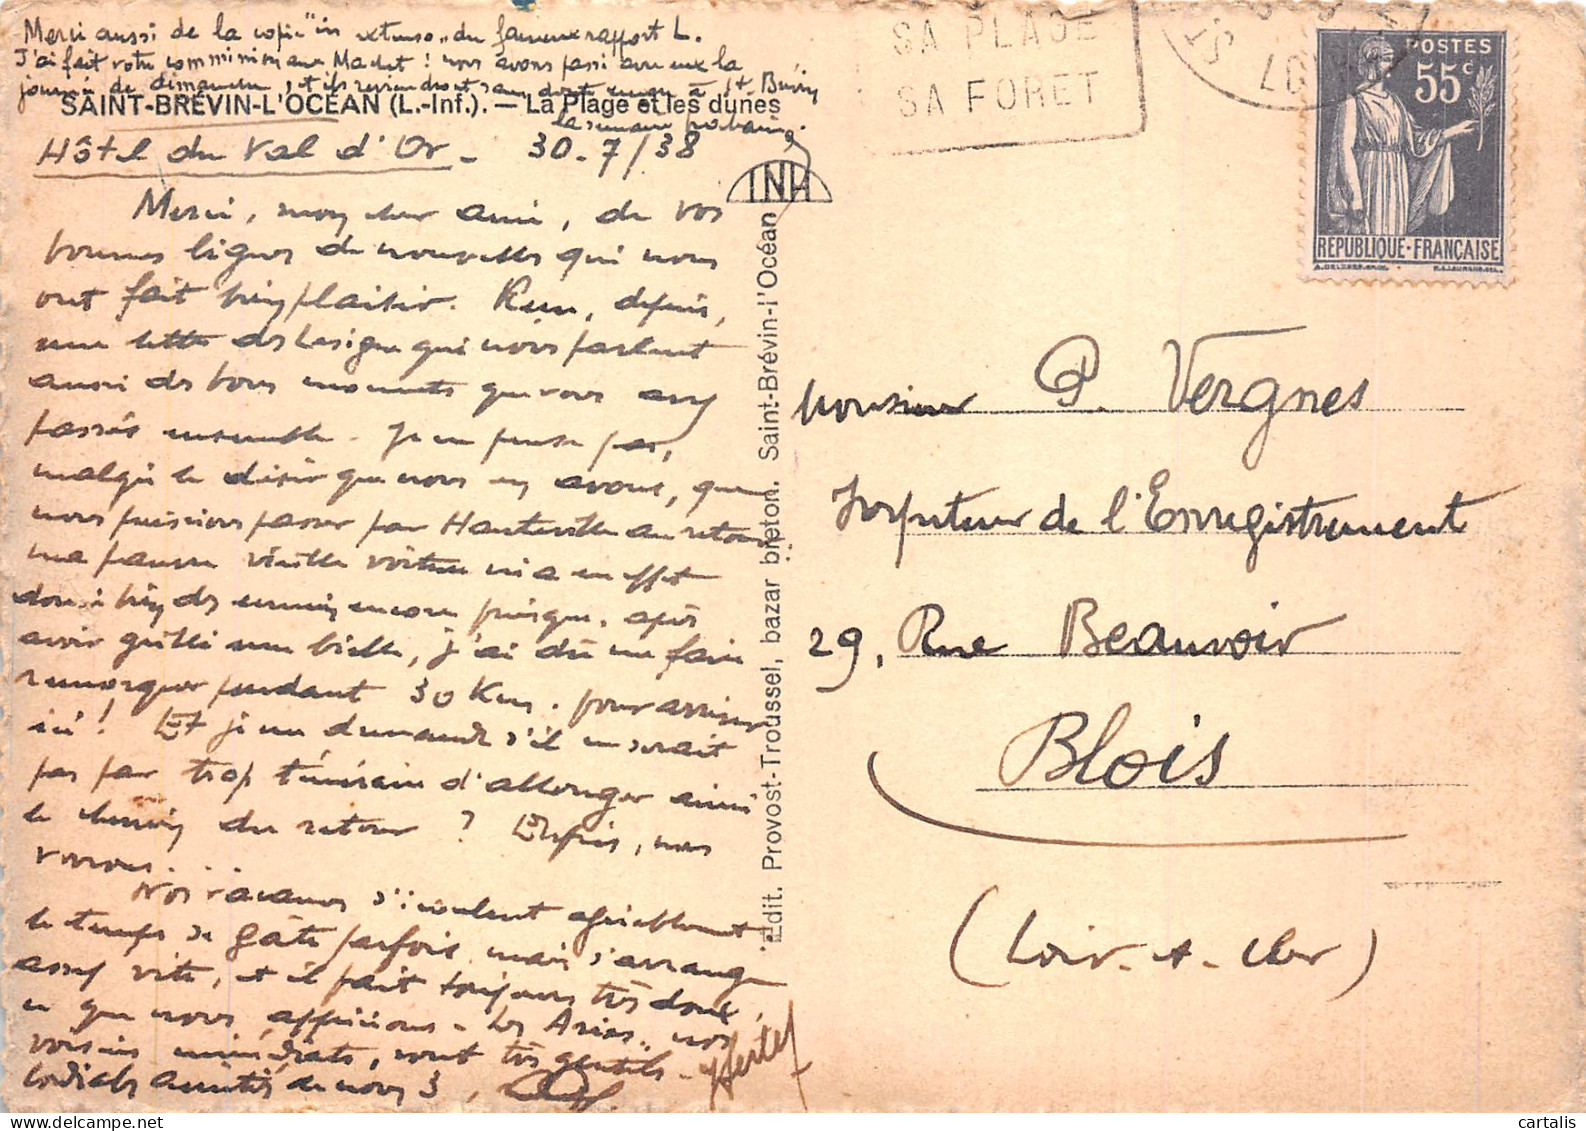 Merci aussi de la copie "in extenso" du fameux rapport L.
J'ai fait votre commission aux Machet ! nous avons passé avec eux la
journée de dimanche, et ils reviendront sans doute encore à St. Brévin
la semaine prochaine.
SAINT-BRÉVIN-L'OCÉAN (L.-Inf.). — La Plage et les dunes
Hôtel du Val d'Or - 30-7/38
Merci, mon cher ami, de vos
bonnes lignes de nouvelles qui nous
ont fait bien plaisir. Reçu, depuis,
une lettre des Lesigne qui nous parlent
aussi des bons moments que vous avez
passés ensemble. Je ne pense pas,
malgré le désir que nous en avons, que
nous puissions passer par Hauteville au retour
ma pauvre vieille voiture m'a en effet
donné bien des ennuis encore puisque, après
avoir grillé une bielle, j'ai dû me faire
remorquer pendant 30 Km. pour arriver
ici ! Et je me demande s'il ne serait
pas par trop téméraire d'allonger ainsi
le chemin du retour ? Depuis, nous
verrons...
Nos vacances s'écoulent agréablement
le temps se gâte parfois, mais s'arrange
assez vite, et il fait toujours très doux,
ce que nous apprécions - Les Arias, nos
voisins immédiats, sont très gentils -
Cordiales amitiés de nous 3,
Hertel
INH
Edit. Provost-Troussel, bazar breton. Saint-Brévin-l'Océan
SA PLAGE
SA FORET
ST
POSTES
55c
RÉPUBLIQUE-FRANÇAISE
Monsieur P. Vergnes
Inspecteur de l'Enregistrement
29, Rue Beauvoir
Blois
(Loir-et-Cher)
cartalis